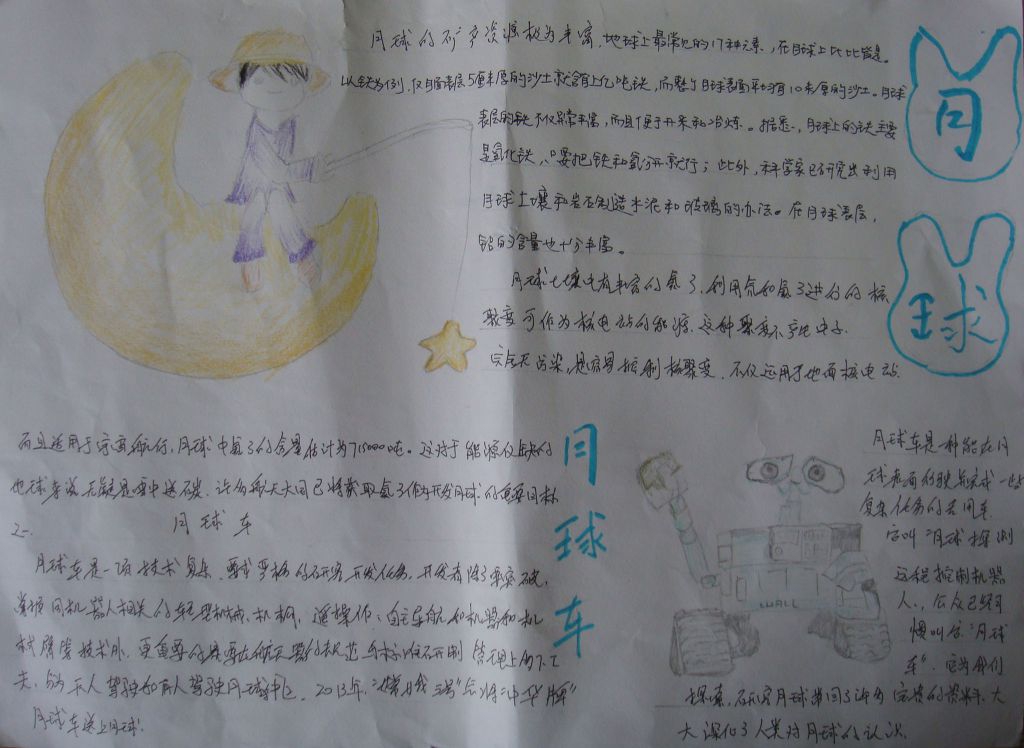 月球的矿产资源极为丰富，地球上最常见的17种元素，在月球上比比皆是。
以铁为例，仅月面表层5厘米厚的沙土就含有上亿吨铁，而整个月球表面平均有10米厚的沙土。月球
表层的铁不仅异常丰富，而且便于开采和冶炼。据悉，月球上的铁主要
是氧化铁，只要把铁和氧分开就行；此外，科学家已研究出利用
月球土壤和岩石制造水泥和玻璃的办法。在月球表层，
铝的含量也十分丰富。
月球
月球土壤中有丰富的氦3，利用氘和氦3进行的核
聚变可作为核电站的能源，这种聚变不产生中子，
安全无污染，是容易控制核聚变，不仅运用于地面核电站
而且适用于宇宙航行，月球中氦3的含量估计为715000吨。这对于能源仅缺的
地球来说无疑是雪中送碳，许多航天大国已将获取氦3作为开发月球的重要目标
之一。
月球车
月球车
月球车是一项技术复杂、要求严格的研究开发任务，开发者除了要突破、
掌握同机器人相关的轻型机械、机构、遥操作、自主导航和机器和机
械臂等技术外，更重要的是要在航天器的规范与标准研制管理上的下工
夫，
2013年，“嫦娥三号”
月球车送上月球。
月球车是一种能在月
球表面行驶并完成一些
复杂任务的专用车
它叫“月球探测
远程控制机器
人”，公众已经习
惯叫它“月球
车”，它为我们
探索、研究月球带回了许多宝贵的资料，大
大深化了人类对月球的认识。
WALL